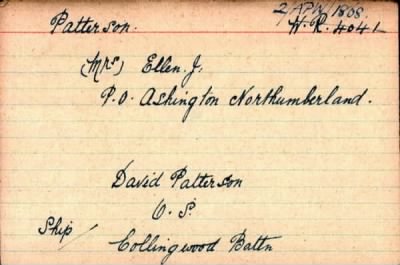 2 APN/1808.
Patterson. W.R. 4041
(Mrs) Ellen. J.
P.O. Ashington Northumberland.
David Patterson
O. S.
Ship/
Collingwood Battn